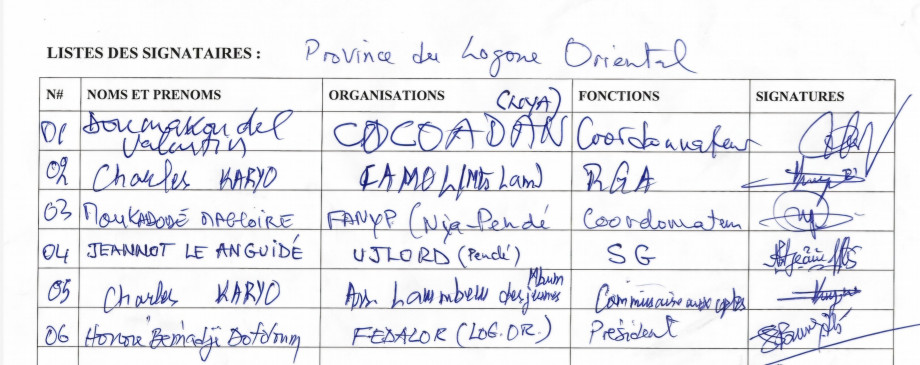 LISTES DES SIGNATAIRES : Province du Logone Oriental
N# NOMS ET PRENOMS ORGANISATIONS FONCTIONS SIGNATURES
01 Valentin COCOADAN Coordonnateur
02 Charles KARYO (Mts Lam) RGA
03 MOUKADODÉ MAGLOIRE FANYP (Nya-Pendé Coordonnateur
04 JEANNOT LE ANGUIDÉ UJLORD (Pendé) SG
05 Charles KARYO des jeunes Commissaire aux cptes
06 Honoré Bémadji FEDALOR (LOG.OR.) Président